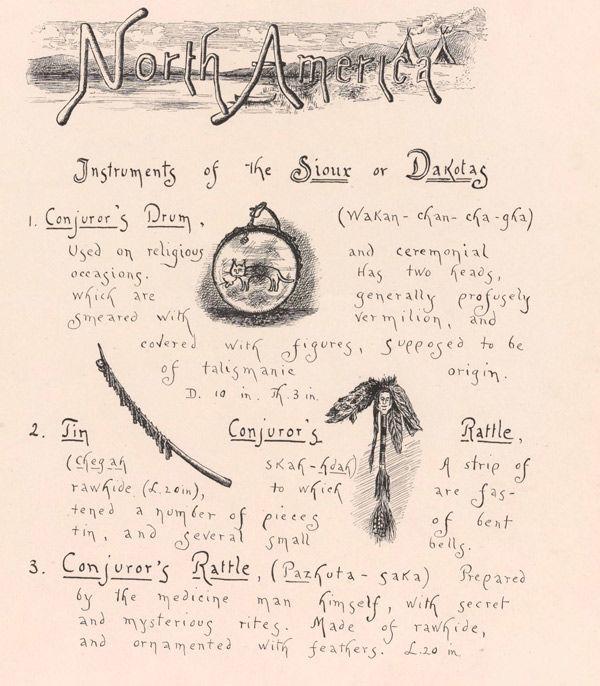 North America
Instruments of the Sioux or Dakotas
1. Conjuror's Drum, (Wakan-chan-cha-gha)
Used on religious and ceremonial
occasions. Has two heads,
which are generally profusely
smeared with vermilion, and
covered with figures, supposed to be
of talismanic origin.
D. 10 in. Th. 3 in.
2. Tin Conjuror's Rattle,
(Chegah skah-hdah) A strip of
rawhide (L. 20 in), to which are fas-
tened a number of pieces of bent
tin, and several small bells.
3. Conjuror's Rattle, (Pazhuta-saka) Prepared
by the medicine man himself, with secret
and mysterious rites. Made of rawhide,
and ornamented with feathers. L. 20 in.